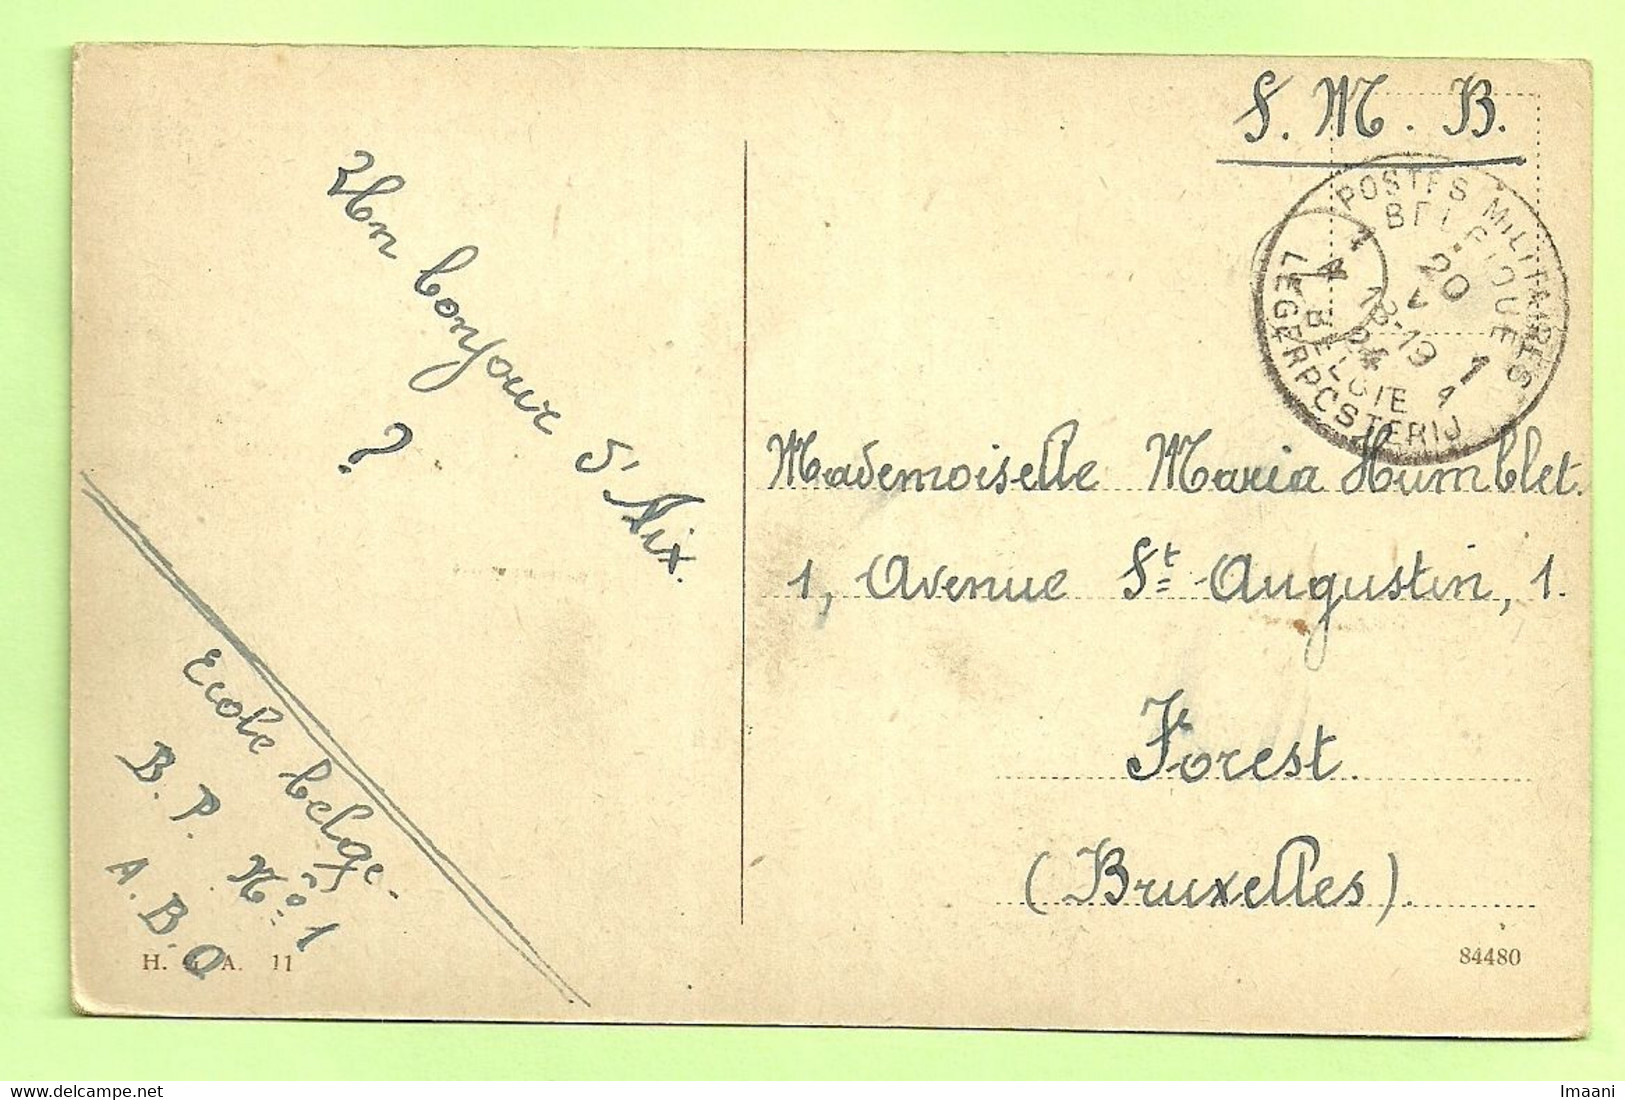 S. M. B.
POSTES MILITAIRES
BELGIQUE
20
V
18-19
24
1
4
BELGIE
LEGERPOSTERIJ
Un bonjour d'Aix.
?
Mademoiselle Maria Humblet.
1, Avenue St Augustin, 1.
Forest.
(Bruxelles).
Ecole belge.
B. P. No 1
A. B. O
H. G. A. 11
84480
Imaani